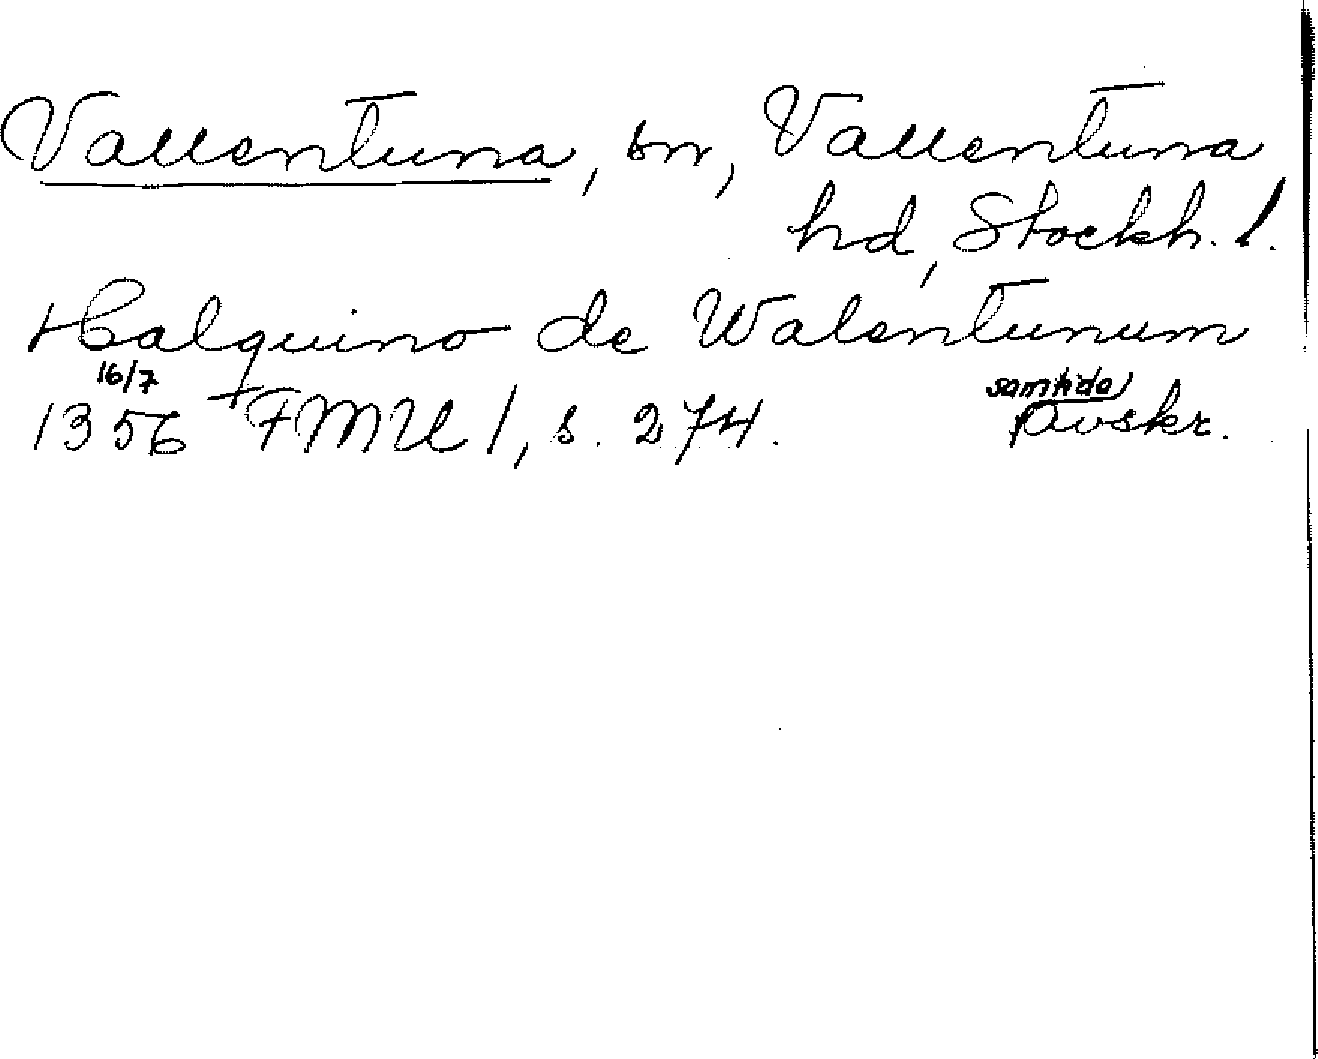 Vallentuna, sn, Vallentuna
hd, Stockh. l.
Halquino de Walentunum
16/7 samtida
1356 FMU 1, s. 274. Avskr.